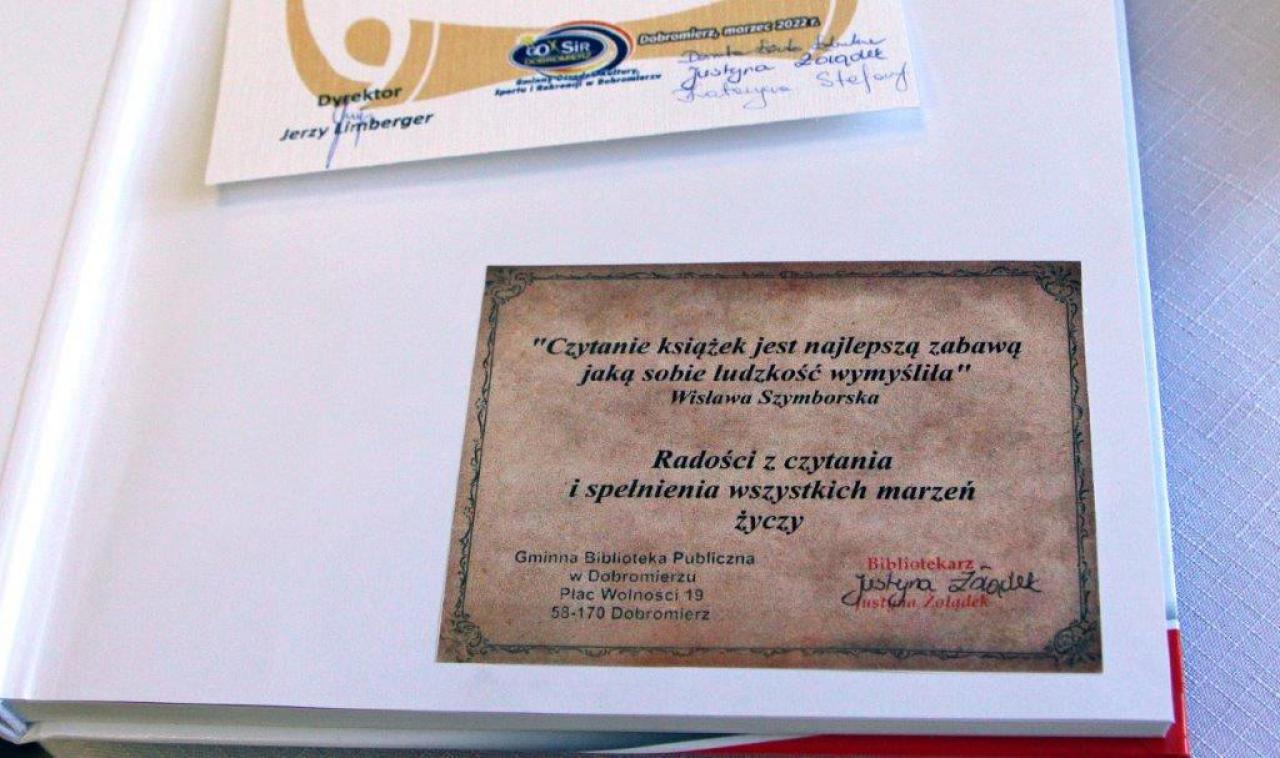 GOKSiR
DOBROMIERZ
Gminny Ośrodek Kultury,
Sportu i Rekreacji w Dobromierzu
Dobromierz, marzec 2022 r.
Justyna Żołądek
Katarzyna
Dyrektor
Jerzy Limberger
"Czytanie książek jest najlepszą zabawą
jaką sobie ludzkość wymyśliła"
Wisława Szymborska
Radości z czytania
i spełnienia wszystkich marzeń
życzy
Gminna Biblioteka Publiczna
w Dobromierzu
Plac Wolności 19
58-170 Dobromierz
Bibliotekarz
Justyna Żołądek
Justyna Żołądek